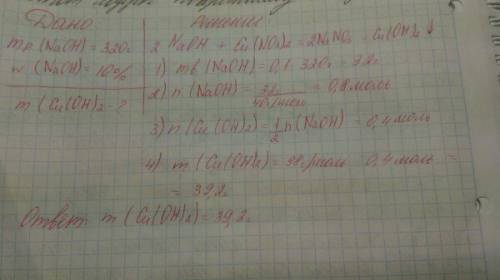 Дано
Решение
mр (NaOH) = 320г
w (NaOH) = 10%
m (Cu(OH)2 - ?
2 NaOH + Cu(NO3)2 = 2NaNO3 + Cu(OH)2 ↓
1) mв (NaOH) = 0,1 · 320г = 32г
2) n (NaOH) = 32г / 40г/моль = 0,8 моль
3) n (Cu(OH)2) = 1/2 n (NaOH) = 0,4 моль
4) m (Cu(OH)2) = 98г/моль · 0,4 моль =
= 39,2г
Ответ m (Cu(OH)2) = 39,2г